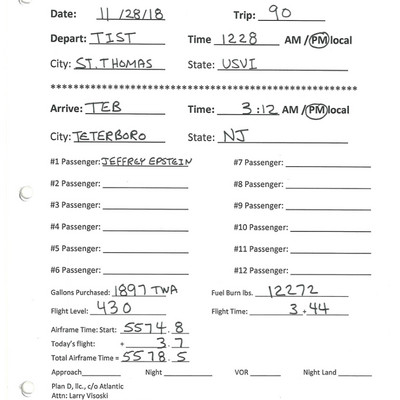 Date: 11/28/18 Trip: 90
Depart: TIST Time 1228 AM / PM local
City: ST. THOMAS State: USVI
****************************************************
Arrive: TEB Time: 3:12 AM / PM local
City: TETERBORO State: NJ
#1 Passenger: JEFFREY EPSTEIN #7 Passenger:
#2 Passenger: #8 Passenger:
#3 Passenger: #9 Passenger:
#4 Passenger: #10 Passenger:
#5 Passenger: #11 Passenger:
#6 Passenger: #12 Passenger:
Gallons Purchased: 1897 TWA Fuel Burn lbs. 12272
Flight Level: 430 Flight Time: 3 + 44
Airframe Time: Start: 5574.8
Today's flight: + 3.7
Total Airframe Time = 5578.5
Approach Night VOR Night Land
Plan D, llc., c/o Atlantic
Attn: Larry Visoski